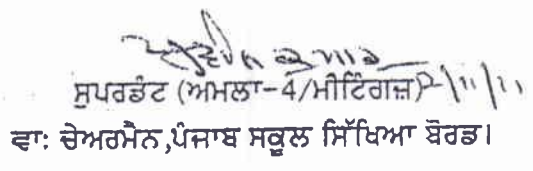 ਸੁਪਰਡੰਟ (ਅਮਲਾ-4/ਮੀਟਿੰਗਜ਼)
ਵਾ: ਚੇਅਰਮੈਨ,ਪੰਜਾਬ ਸਕੂਲ ਸਿੱਖਿਆ ਬੋਰਡ।